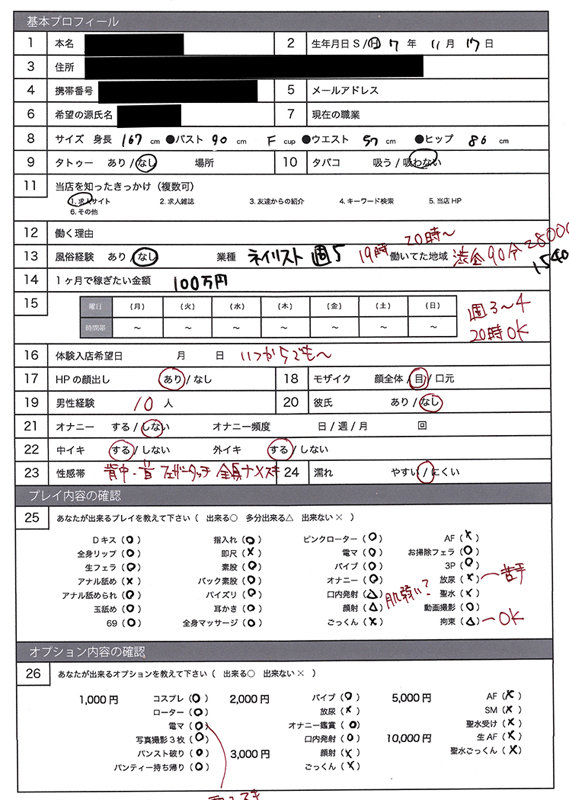 基本プロフィール
1 本名 2 生年月日 S / H 7 年 11 月 17 日
3 住所
4 携帯番号 5 メールアドレス
6 希望の源氏名 7 現在の職業
8 サイズ 身長 167 cm ●バスト 90 cm F cup ●ウエスト 57 cm ●ヒップ 86 cm
9 タトゥー あり / なし 場所 10 タバコ 吸う / 吸わない
11 当店を知ったきっかけ（複数可）
1. 求人サイト 2. 求人雑誌 3. 友達からの紹介 4. キーワード検索 5. 当店 HP
6. その他
12 働く理由 20時〜
13 風俗経験 あり / なし 業種 ネイリスト 週5 19時 働いてた地域 90分 25000
14 1ヶ月で稼ぎたい金額 100万円
15 曜日 (月) (火) (水) (木) (金) (土) (日) 週3〜4
時間帯 〜 〜 〜 〜 〜 〜 〜 20時OK
16 体験入店希望日 月 日 いつからでも〜
17 HPの顔出し あり / なし 18 モザイク 顔全体 / 目 / 口元
19 男性経験 10 人 20 彼氏 あり / なし
21 オナニー する / しない オナニー頻度 日 / 週 / 月 回
22 中イキ する / しない 外イキ する / しない
23 性感帯 背中・首 フェザータッチ 全身ナメ 24 濡れ やすい / にくい
プレイ内容の確認
25 あなたが出来るプレイを教えて下さい （ 出来る○ 多分出来る△ 出来ない× ）
Dキス（○） 指入れ（○） ピンクローター（○） AF（×）
全身リップ（○） 即尺（×） 電マ（○） お掃除フェラ（○）
生フェラ（○） 素股（○） バイブ（○） 3P（○）
アナル舐め（×） バック素股（○） オナニー（○） 放尿（×）〜苦手
アナル舐められ（○） パイズリ（○） 口内発射（△） 肌弱い？ 聖水（×）
玉舐め（○） 耳かき（○） 顔射（△） 動画撮影（○）
69（○） 全身マッサージ（○） ごっくん（×） 拘束（△）〜OK
オプション内容の確認
26 あなたが出来るオプションを教えて下さい （ 出来る○ 出来ない× ）
1,000円 コスプレ（○） 2,000円 バイブ（○） 5,000円 AF（×）
ローター（○） 放尿（×） SM（×）
電マ（○） オナニー鑑賞（○） 聖水受け（×）
写真撮影3枚（○） 口内発射（○） 10,000円 生AF（×）
パンスト破り（○） 3,000円 顔射（×） 聖水ごっくん（×）
パンティー持ち帰り（○） ごっくん（×）